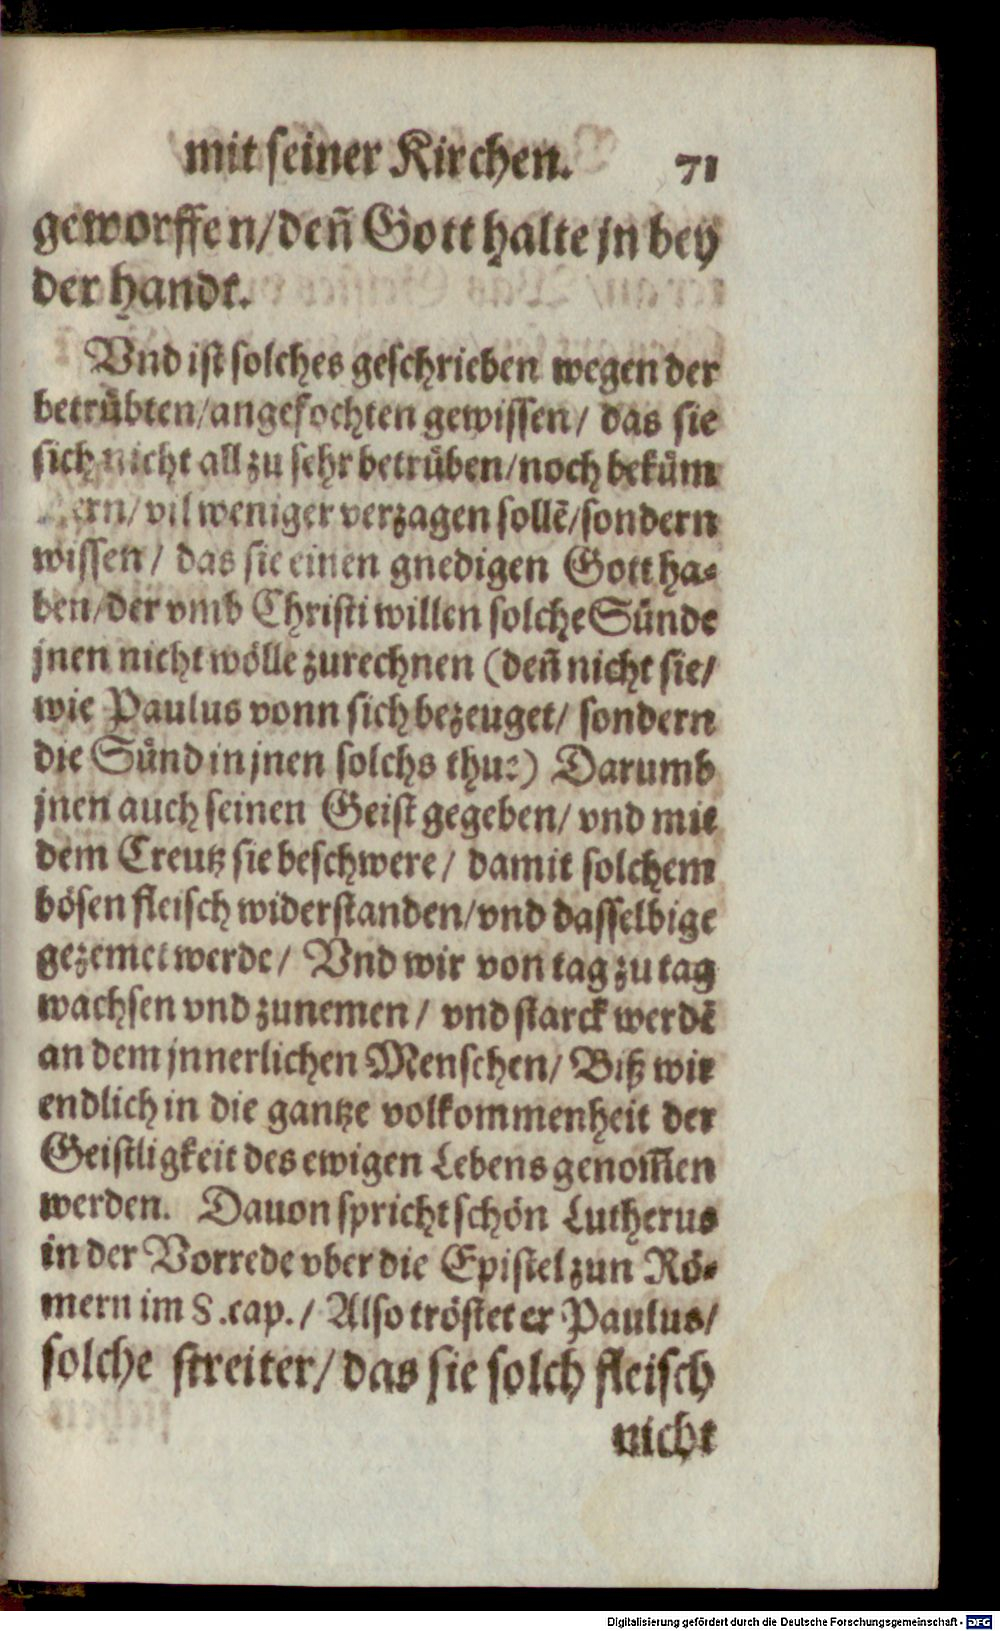 mit seiner Kirchen. 71
geworffen/deñ Gott halte jn bey
der handt.
Vnd ist solches geschrieben wegen der
betrübten/angefochten gewissen/ das sie
sich nicht all zu sehr betrüben/noch beküm
ern/ vil weniger verzagen sollẽ/sondern
wissen/ das sie einen gnedigen Gott ha-
ben/der vmb Christi willen solche Sünde
jnen nicht wölle zurechnen (deñ nicht sie/
wie Paulus vonn sich bezeuget/ sondern
die Sünd in jnen solchs thut) Darumb
jnen auch seinen Geist gegeben/ vnd mit
dem Creutz sie beschwere/ damit solchem
bösen fleisch widerstanden/vnd dasselbige
gezemet werde/ Vnd wir von tag zu tag
wachsen vnd zunemen/ vnd starck werdẽ
an dem jnnerlichen Menschen/ Biß wir
endlich in die gantze volkommenheit der
Geistligkeit des ewigen Lebens genom̃en
werden. Dauon spricht schön Lutherus
in der Vorrede vber die Epistel zun Rö-
mern im 8.cap./ Also tröstet er Paulus/
solche streiter/das sie solch fleisch
nicht
Digitalisierung gefördert durch die Deutsche Forschungsgemeinschaft - DFG